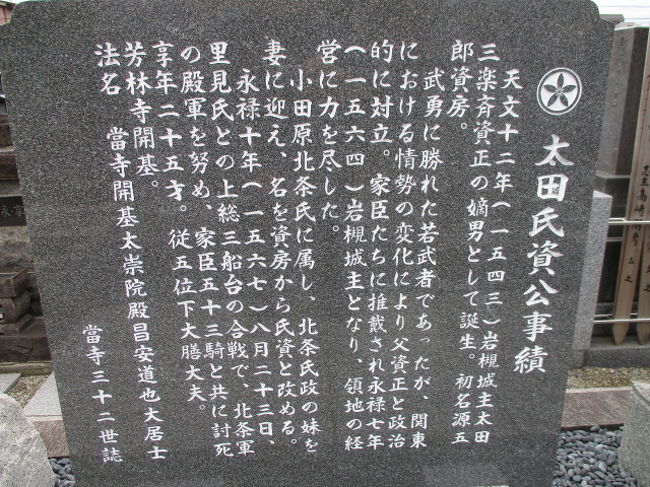 太田氏資公事績
天文十二年(一五四三)岩槻城主太田
三楽斉資正の嫡男として誕生。初名源五
郎資房。
武勇に勝れた若武者であったが、関東
における情勢の変化により父資正と政治
的に対立。家臣たちに推戴され永禄七年
(一五六四)岩槻城主となり、領地の経
営に力を尽した。
小田原北条氏に属し、北条氏政の妹を
妻に迎え、名を資房から氏資と改める。
永禄十年(一五六七)八月二十三日、
里見氏との上総三船台の合戦で、北条軍
の殿軍を努め、家臣五十三騎と共に討死
享年二十五才。従五位下大膳大夫。
芳林寺開基。
法名 當寺開基太崇院殿昌安道也大居士
當寺三十二世誌